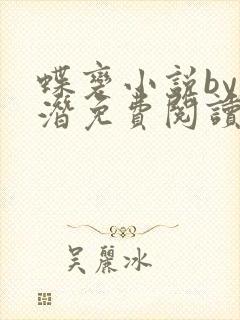 蝶褒小説by
潛免費閱讀
吴麗冰